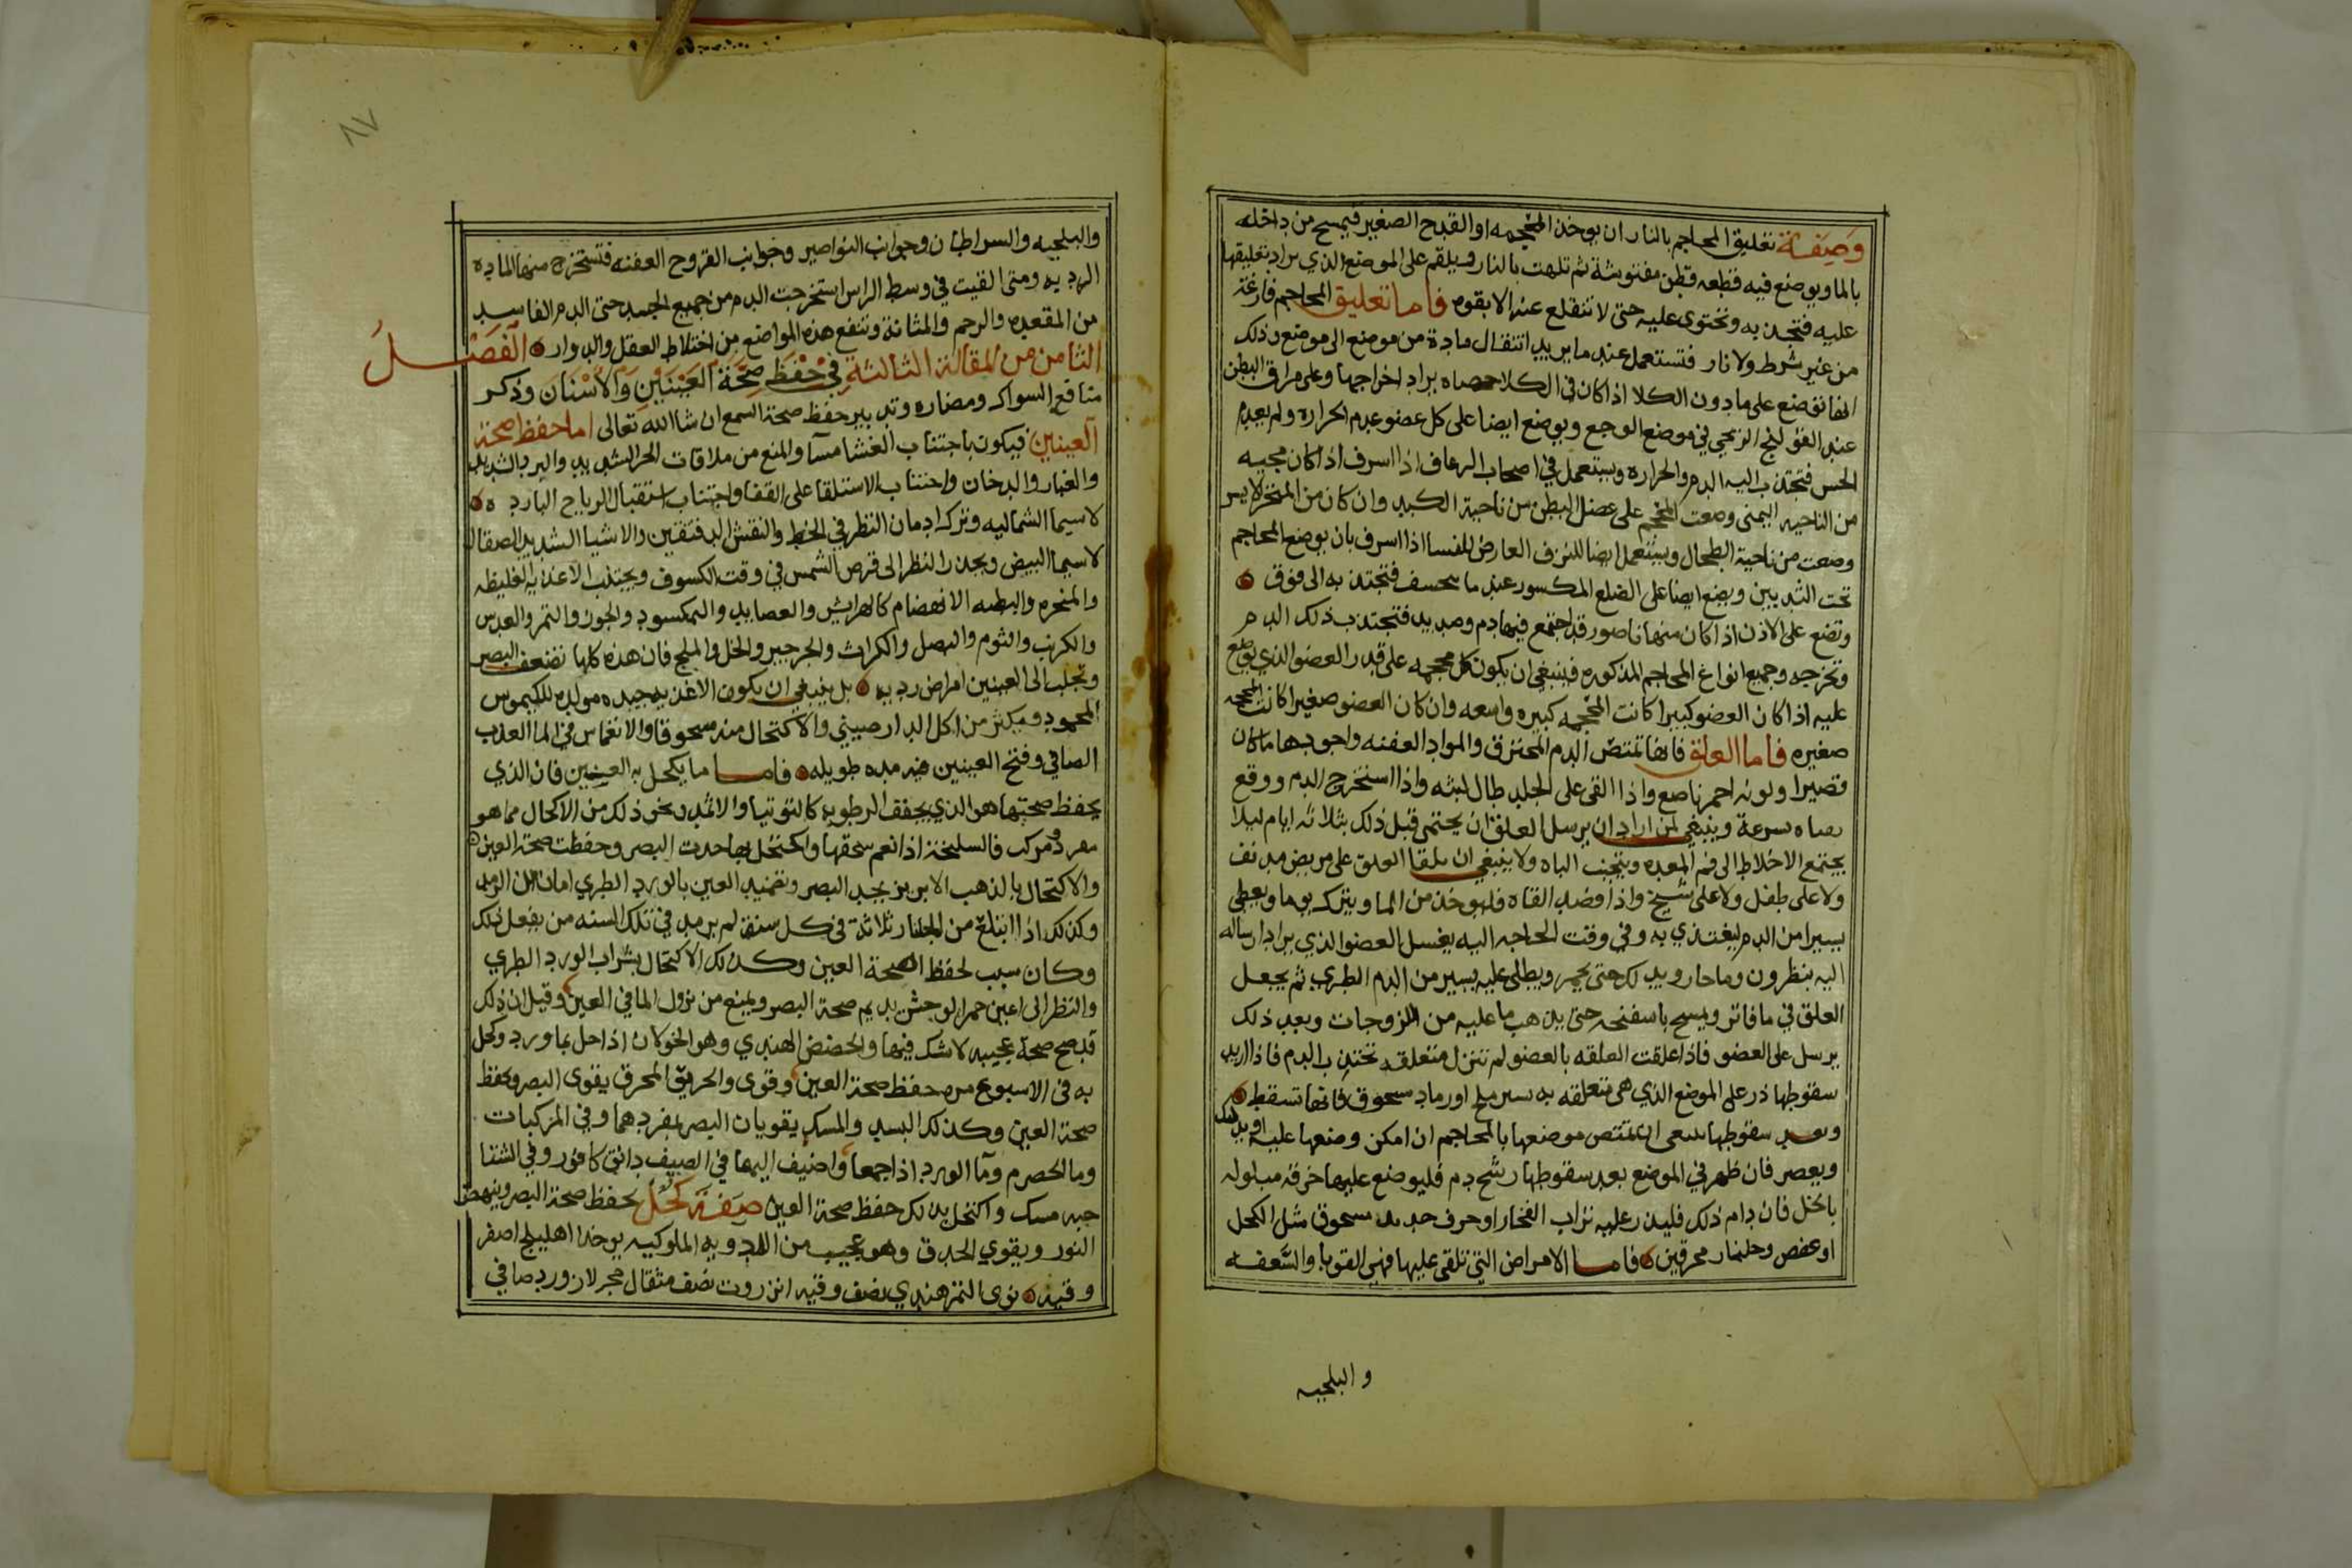 وصفة تعليق المحاجم بالنار ان يوخذ المحجمه او القدح الصغير فيمسح من داخله
بالما ويوضع فيه قطعه قطن مفتوشة ثم تلهت بالنار ويلقم على الموضع الذي يراد تعليقها
عليه فتجذبه وتحتوى عليه حتى لا تنقلع عنه الا بقوه فاما تعليق المحاجم فارغة
من غير شرط ولا نار فتستعمل عند ما يريد انتقال مادة من موضع الى موضع وذلك
انها توضع على ما دون الكلا اذا كان في الكلا حصاه يراد اخراجها وعلى مراق البطن
عند القولنج الريحي في موضع الوجع ويوضع ايضا على كل عضو عدم الحراره ولم يعدم
الحس فتجتذب اليه الدم والحراره ويستعمل في اصحاب الرعاف اذا اسرف اذا كان مجيه
من الناحيه اليمنى وضعت المحجم على عضل البطن من ناحية الكبد وان كان من المنخر الايسر
وضعت من ناحية الطحال ويستعمل ايضا للنزف العارض للنفسا اذا اسرف بان يوضع المحاجم
تحت الثديين ويضع ايضا على الضلع المكسور عند ما ينخسف فتجتذبه الى فوق
وتضع على الاذن اذا كان منها ناصور قد اجتمع فيها دم وصديد فتجتذب ذلك الدم
وتخرجه وجميع انواع المحاجم المذكوره فينبغي ان يكون كل محجمه على قدر العضو الذي يوضع
عليه اذا كان العضو كبيرا كانت المحجمه كبيره واسعه وان كان العضو صغيرا كانت المحجمه
صغيره فاما العلق فانها تمتص الدم المحترق والمواد العفنه واجودها ما كان
قصيرا ولونه احمر ناصع واذا القى على الجلد طال لبثه واذا استخرج الدم ووقع
بسرعة وينبغي لمن اراد ان يرسل العلق ان يحتمى قبل ذلك بثلاثه ايام ليلا
يجتمع الاخلاط الى فم المعده ويتجنب الباه ولا ينبغي ان يلقا العلق على مريض مدنف
ولا على طفل ولا على شيخ واذا فصد القاه فليوخذ من الما ويترك يوما ويعطى
يسيرا من الدم ليغتذي به وفي وقت الحاجه اليه يغسل العضو الذي يراد ارساله
اليه بنطرون وما حار ويدلك حتى يحمر ويطلى عليه يسير من الدم الطري ثم يجعل
العلق في ما فاتر ويمسح باسفنجه حتى يذهب ما عليه من اللزوجات وبعد ذلك
يرسل على العضو فاذا علقت العلقه بالعضو لم تنزل متعلقه تجتذب الدم فاذا اريد
سقوطها ذر على الموضع الذي هي متعلقه به يسير ملح او رماد مسحوق فانها تسقط
وبعد سقوطها ينبغي ان تمتص موضعها بالمحاجم ان امكن وضعها عليه او يدلك
ويعصر فان ظهر في الموضع بعد سقوطها رشح دم فليوضع عليها خرقه مبلوله
بالخل فان دام ذلك فليذر عليه تراب الفخار او خزف جديد مسحوق مثل الكحل
او عفص وجلنار محرقين فاما الامراض التي تلقى عليها فهي القوبا والسعفه
والبلخيه
٨٧
والبلخيه والسراطان وجوانب النواصير وجوانب القروح العفنه فتستخرج منها الماده
الرديه ومتى القيت في وسط الراس استخرجت الدم من جميع الجسد حتى الدم الفاسد
من المقعده والرحم والمثانة وتنفع هذه المواضع من اختلاط العقل والدوار الفصل
الثامن من المقالة الثالثة في حفظ صحة العينين والاسنان وذكر
منافع السواك ومضاره وتدبير حفظ صحة السمع ان شا الله تعالى اما حفظ صحة
العينين فيكون باجتناب العشا مسآ والمنع من ملاقات الحر الشديد والبرد الشديد
والغبار والدخان واجتناب الاستلقا على القفا واجتناب استقبال الرياح البارده
لاسيما الشماليه وترك ادمان النظر في الخط والنقش الدقيقين والاشيا الشديد الصقال
لاسيما البيض ويحذر النظر الى قرص الشمس في وقت الكسوف ويجتنب الاغذيه الغليظه
والمبخره والبطيه الانهضام كالهرايس والعصايد والنمكسود والجوز والتمر والعدس
والكرنب والثوم والبصل والكراث والجرجير والخل والملح فان هذه كلها تضعف البصر
وتجلب الى العينين امراض رديه بل ينبغي ان يكون الاغذيه جيده مولده للكيموس
المحمود ويكثر من اكل الدارصيني والاكتحال منه مسحوقا والانغماس في الما العذب
الصافي وفتح العينين فيه مده طويله فاما ما يكحل به العينين فان الذي
يحفظ صحتها هو الذي يجفف الرطوبه كالتوتيا والاثمد ونحو ذلك من الاكحال مما هو
مفرد ومركب فالسليخة اذا نعم سحقها واكتحل بها احدت البصر وحفظت صحة العين
والاكتحال بالذهب الابريز يحد البصر وتضميد العين بالورد الطري امان من الرمد
وكذلك اذا ابتلع من الجلنار ثلاثة في كل سنة لم يرمد في تلك السنه من يفعل ذلك
وكان سبب لحفظ الصحة العين وكذلك الاكتحال بشراب الورد الطري
والنظر الى اعين حمر الوحش يديم صحة البصر ويمنع من نزول الما في العين وقيل ان ذلك
قد صح صحة عجيبه لا شك فيها والحضض الهندي وهو الخولان اذا حل بماورد وكحل
به في الاسبوع مره حفظ صحة العين وقوى والحريق المحرق يقوى البصر ويحفظ
صحة العين وكذلك البسد والمسك يقويان البصر بمفردهما وفي المركبات
وما الحصرم ومآ الورد اذا جمعا واضيف اليهما في الصيف دانق كافور وفي الشتا
حبه مسك واكتحل بذلك حفظ صحة العين صفة كحل يحفظ صحة البصر وينهض
النور ويقوي الحدق وهو عجيب من الادويه الملوكيه يوخذ اهليلج اصفر
وقيه نوى التمر هندي نصف وقيه انزروت نصف مثقال حجر لازورد صافي